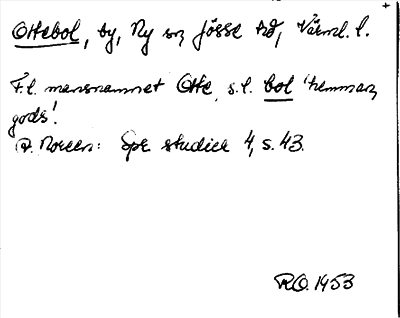 Ottebol, by, Ny sn, Jösse hd, Värml. l.
F.l. mansnamnet Otte, s.l. bol 'hemman,
gods'.
A. Noreen: Spr. studier 4, s. 43.
R.O. 1953